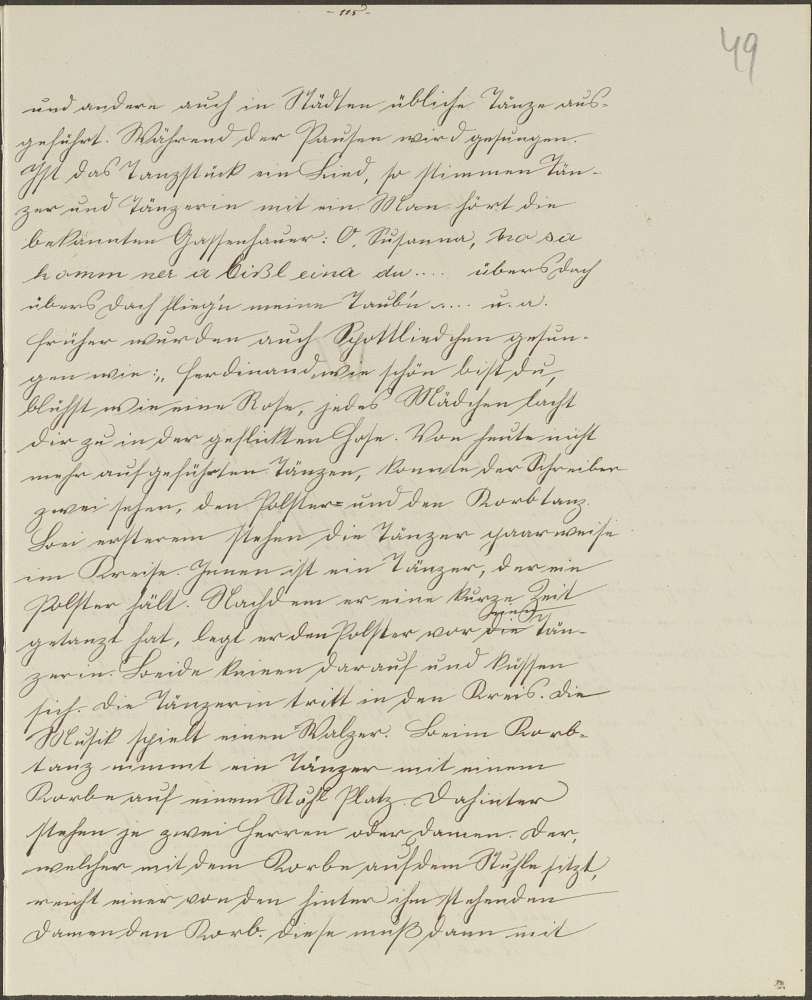 - 115 -
49
und andere auch in Städten übliche Tänze aus-
geführt. Während der Pausen wird gesungen.
Ist das Tanzstück ein Lied, so stimmen Tän-
zer und Tänzerin mit ein. Man hört die
bekannten Gassenhauer: O, Susanna, no sa
komm ner a bißl eina du .... übers Dach
übers Dach flieg'n meine Taub'n .... u. a.
Früher wurden auch Spottliedchen gesun-
gen wie: „Ferdinand, wie schön bist du,
blühst wie eine Rose, jedes Mädchen lacht
dir zu in der geflickten Hose. Von heute nicht
mehr aufgeführten Tänzen, konnte der Schreiber
zwei sehen, den Polster- und den Korbtanz.
Bei ersterem stehen die Tänzer paarweise
im Kreise. Innen ist ein Tänzer, der ein
Polster hält. Nachdem er eine kurze Zeit
getanzt hat, legt er den Polster vor die Tän-
zerin. Beide knieen darauf und küssen
sich. Die Tänzerin tritt in den Kreis. Die
Musik spielt einen Walzer. Beim Korb-
tanz nimmt ein Tänzer mit einem
Korbe auf einem Stuhl Platz. Dahinter
stehen je zwei Herren oder Damen. Der,
welcher mit dem Korbe auf dem Stuhle sitzt,
reicht einer von den hinter ihm stehenden
Damen den Korb. Diese muß dann mit